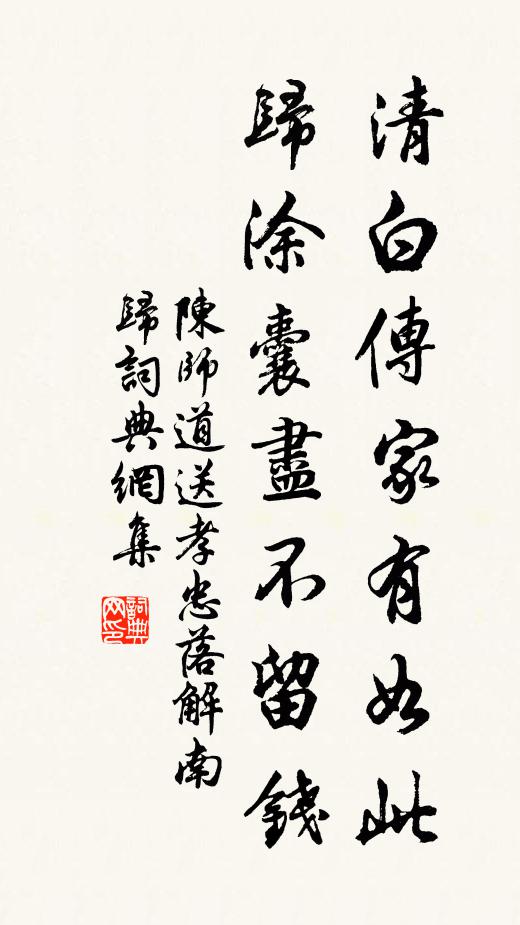 清白傳家有如此
歸涂囊盡不留錢
陳師道送孝忠落解南
歸詞典網集
詞典
网印